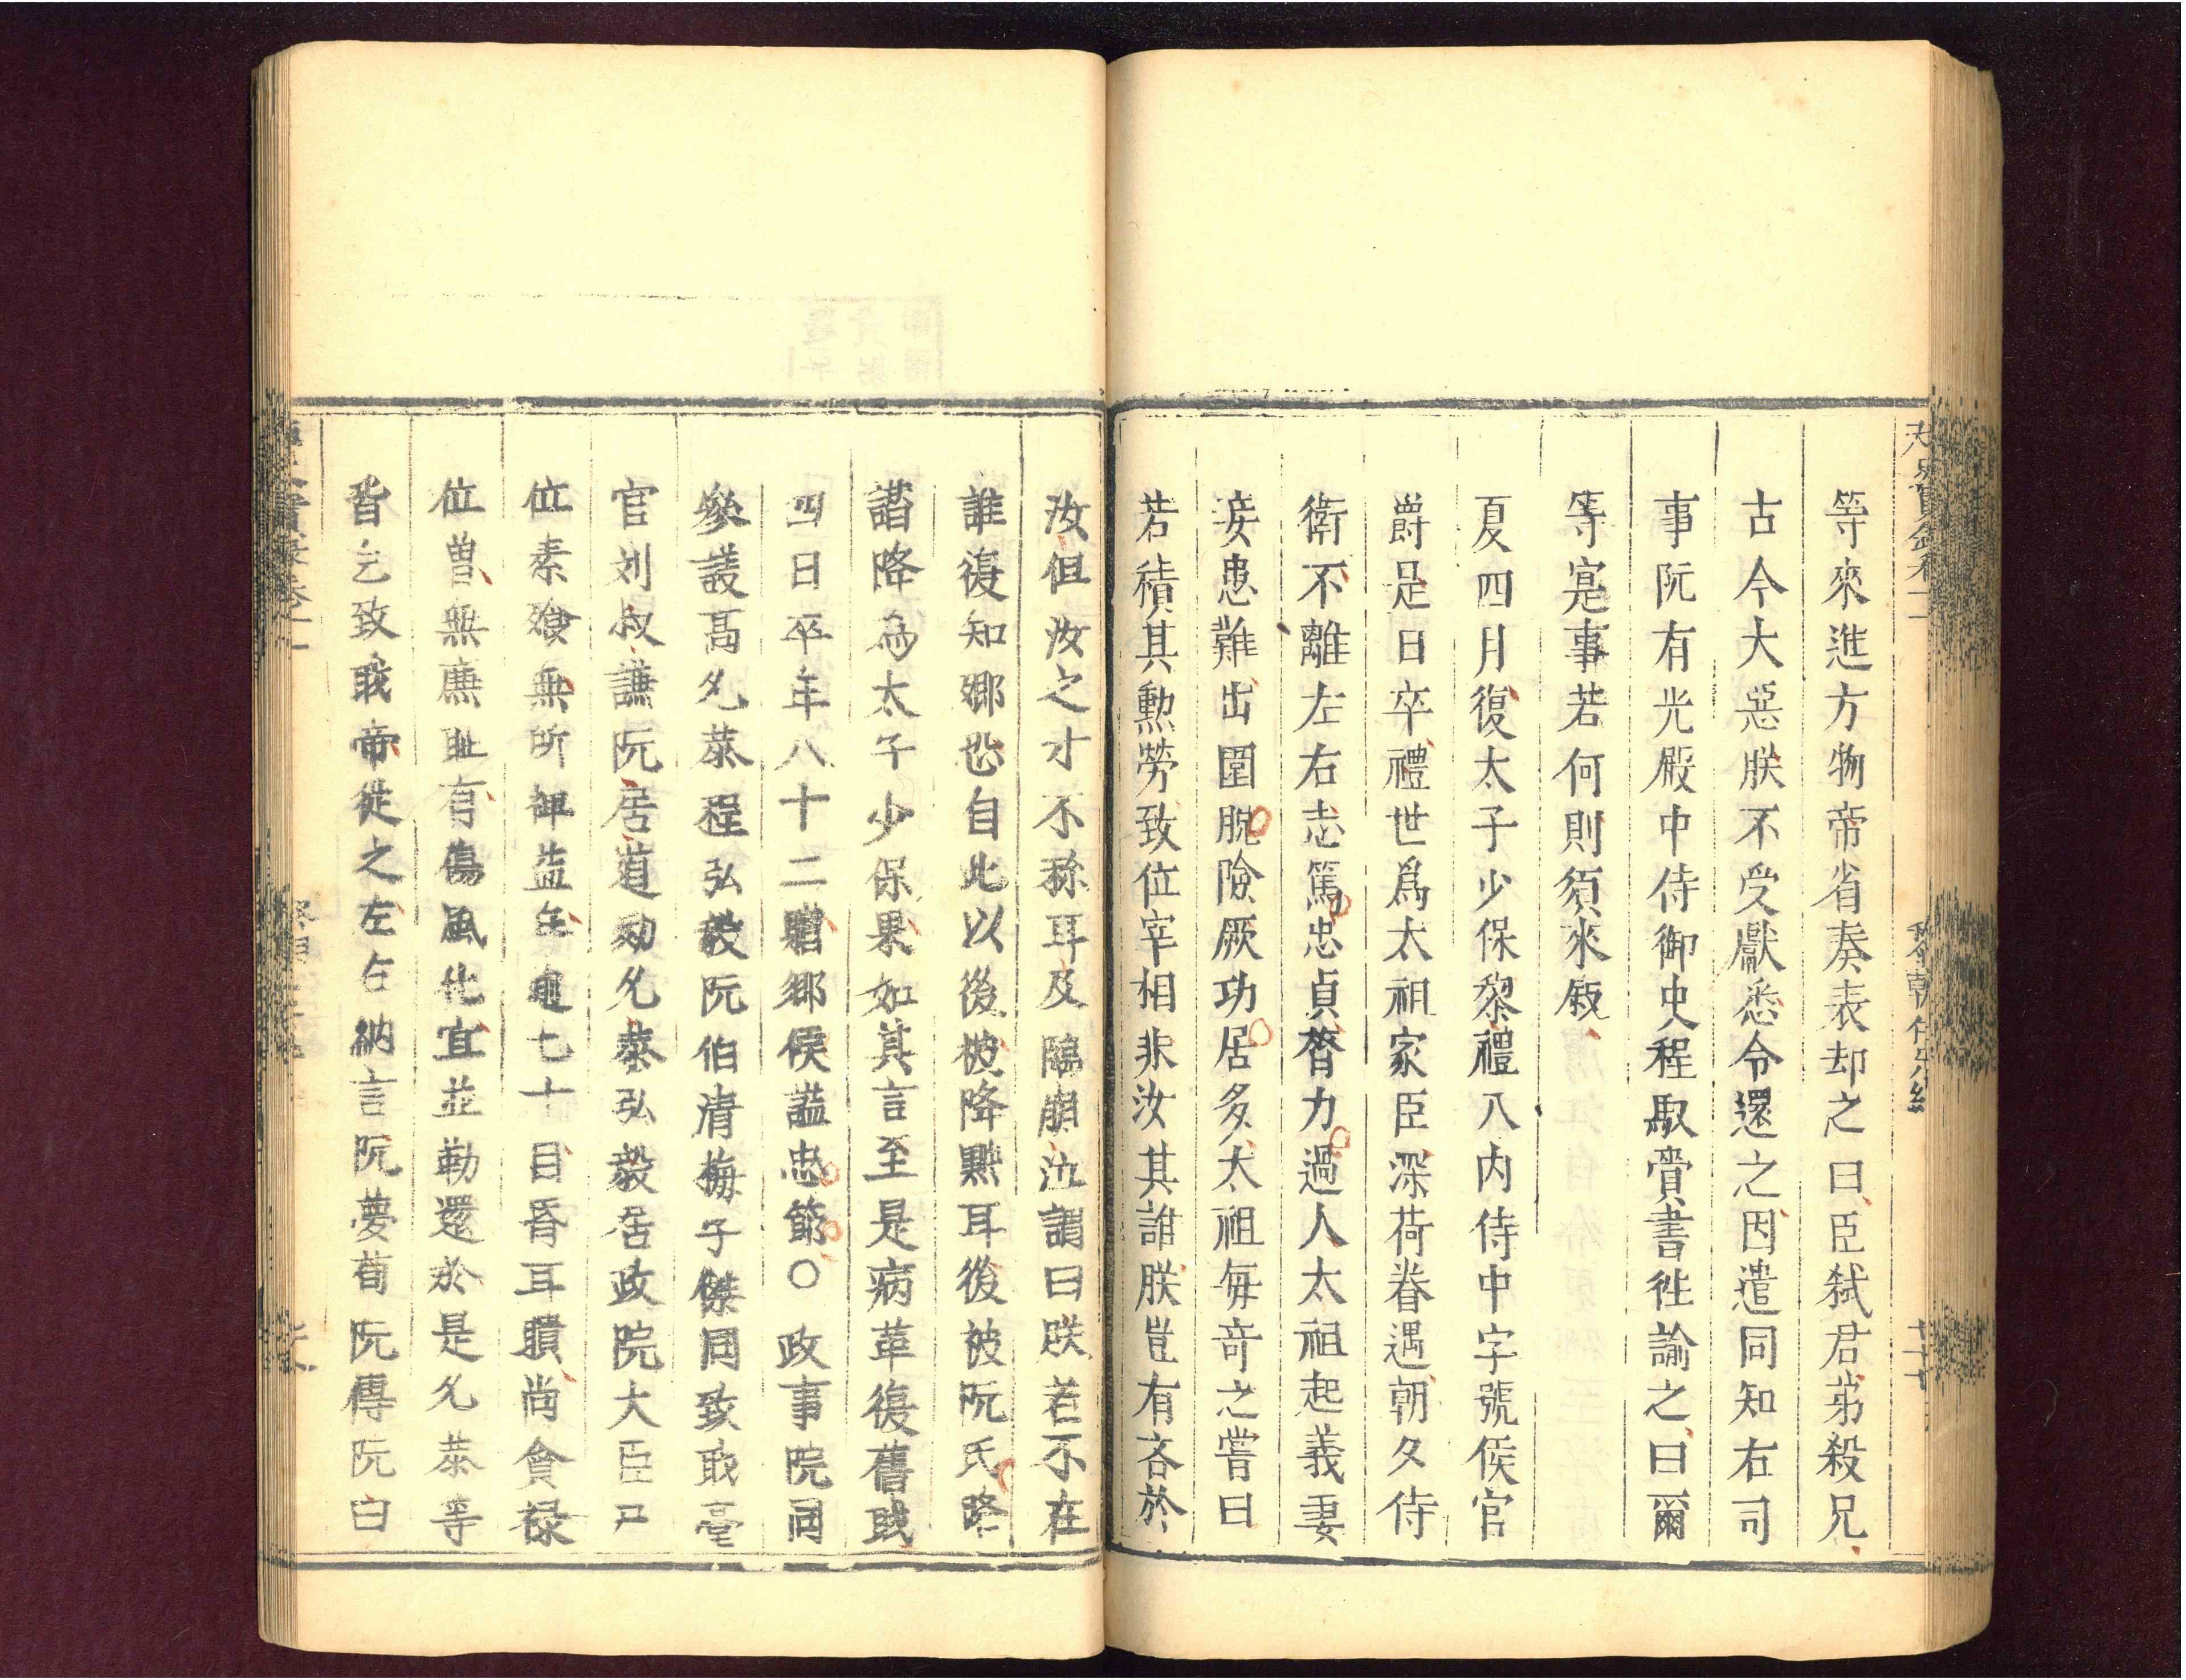 等來進方物帝省奏表却之曰臣弑君苐殺兄
古今大惡朕不受獻悉令還之因遣同知右司
事阮有光殿中侍御史程馭賫書徃諭之曰爾
等寔事若何則須來叚
夏四月復太子少保黎禮入内侍中字號侯官
爵是日卒禮世爲太祖家臣深荷眷遇朝夕侍
衛不離左右志篤忠貞膂力過人太祖起義妻
妾患難出圍脫險厥功居多太祖每竒之嘗曰
若積其勲勞致位宰相非汝其誰朕豈有吝於
汝但汝之才不称耳及臨崩泣謂曰朕若不在
誰復知郷恐自此以後被降黜耳後被阮氏
譛降為太子少保果如其言至是病革復舊職
四日卒年八十二贈郷侯謚忠節〇政事院同
參議髙允恭程弘毅阮伯清梅子傑同致敢毫
官刘叔謙阮居道劾允恭弘毅居政院大臣口
位素飡無所裨益年逾七十目昏耳聵尚貪禄
位曽無廉耻有傷風化宜並勒還於是允恭等
皆乞致戝帝從之左右納言阮夢荀阮傳阮白